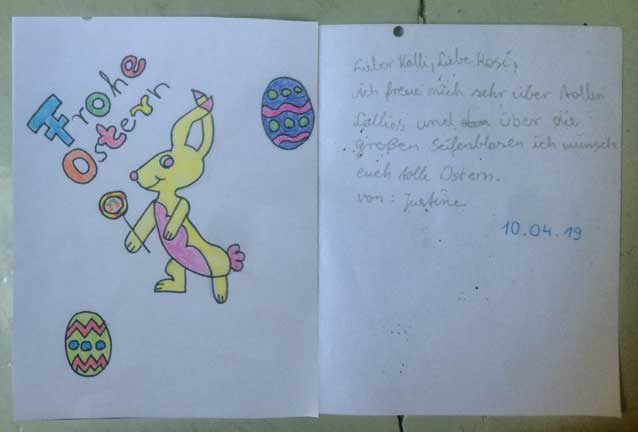 Frohe
Ostern
Lieber Kalli, Liebe Rosi,
ich freue mich sehr über tollen
Lollies, und über die
großen Seifenblasen ich wünsch
euch tolle Ostern.
von: Justine
10.04.19